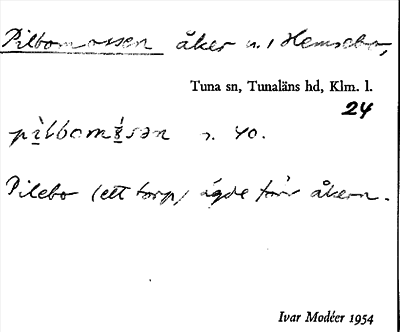 Pilbomossen åker u. 1 Hemsebo,
Tuna sn, Tunaläns hd, Klm. l.
24
s. 40.
Pilebo (ett torp) ägde förr åkern.
Ivar Modéer 1954